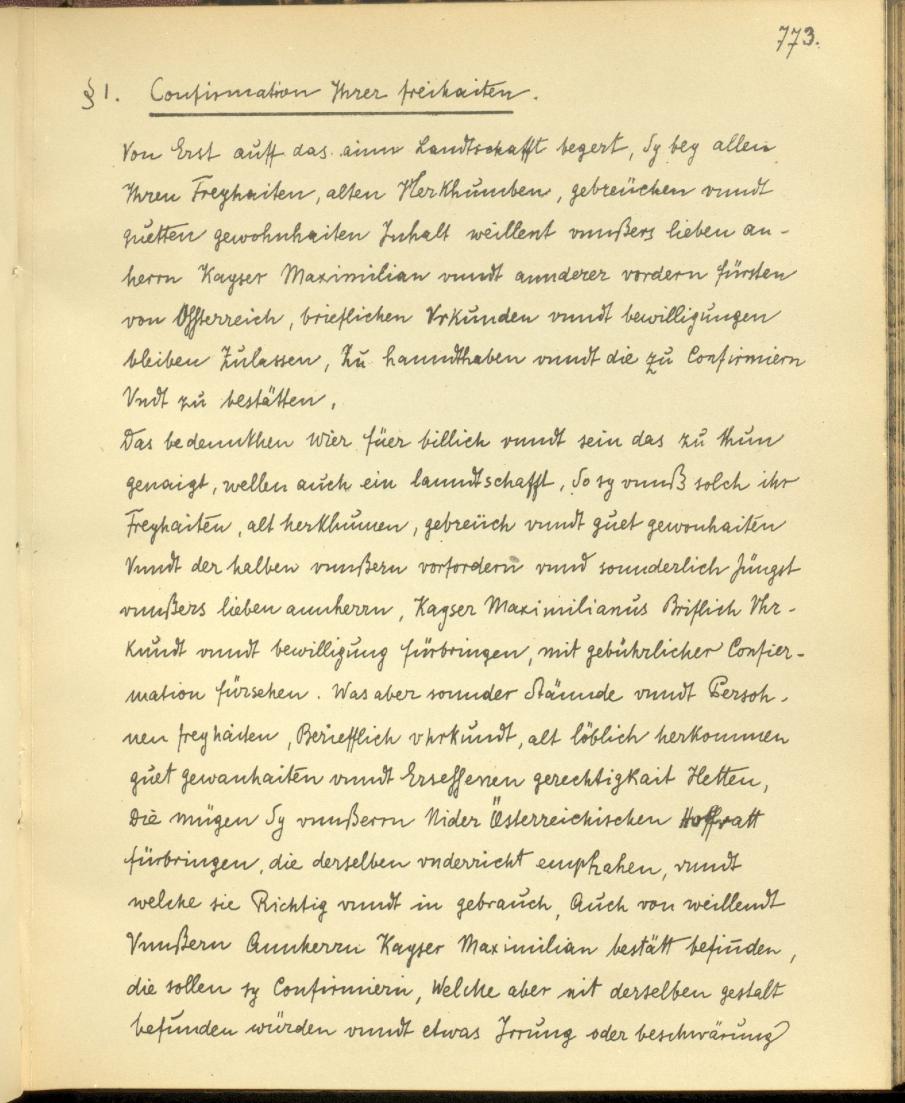 773.
§ 1. Confirmation Ihrer freihaiten.
Von Erst auff das ainn Landtschafft begert, Sy bey allen
Ihren Freyhaiten, alten Herkhumben, gebreüchen vnndt
guetten gewohnhaiten Inhalt weillent vnnßers lieben an-
herrn Kayser Maximilian vnndt annderer vordern fürsten
von Össterreich, brieflichen Vrkunden vnndt bewilligungen
bleiben Zulassen, Zu hanndthaben vnndt die zu Confirmiern
Vndt zu bestätten,
Das bedennkhen wier füer billich vnndt sein das zu thun
genaigt, wellen auch ein lanndtschafft, So sy vnnß solch ihr
Freyhaiten, alt herkhumen, gebreüch vnndt guet gewonhaiten
Vnndt derhalben vnnßern vorfordern vnnd sonnderlich Jüngst
vnnßers lieben annherrn, Kayser Maximilianus Briflich Vhr-
Kundt vnndt bewilligung fürbringen, mit gebührlicher Confier-
mation fürsehen. Was aber sonnder Stännde vnndt Persoh-
nen freyhaiten, Berieflich vhrkundt, alt löblich herkommen
guet gewanhaiten vnndt Ersessenen gerechtigkait Hetten,
Die mügen Sy vnnßerrn Nider Österreichischen Hoffratt
fürbringen, die derselben vnderricht emphahen, vnndt
welche sie Richtig vnndt in gebrauch, Auch von weillendt
Vnnßern Annherrn Kayser Maximilian bestätt befinden,
die sollen sy Confirmiern, Welche aber nit derselben gestalt
befunden würden vnndt etwas Irrung oder beschwärung